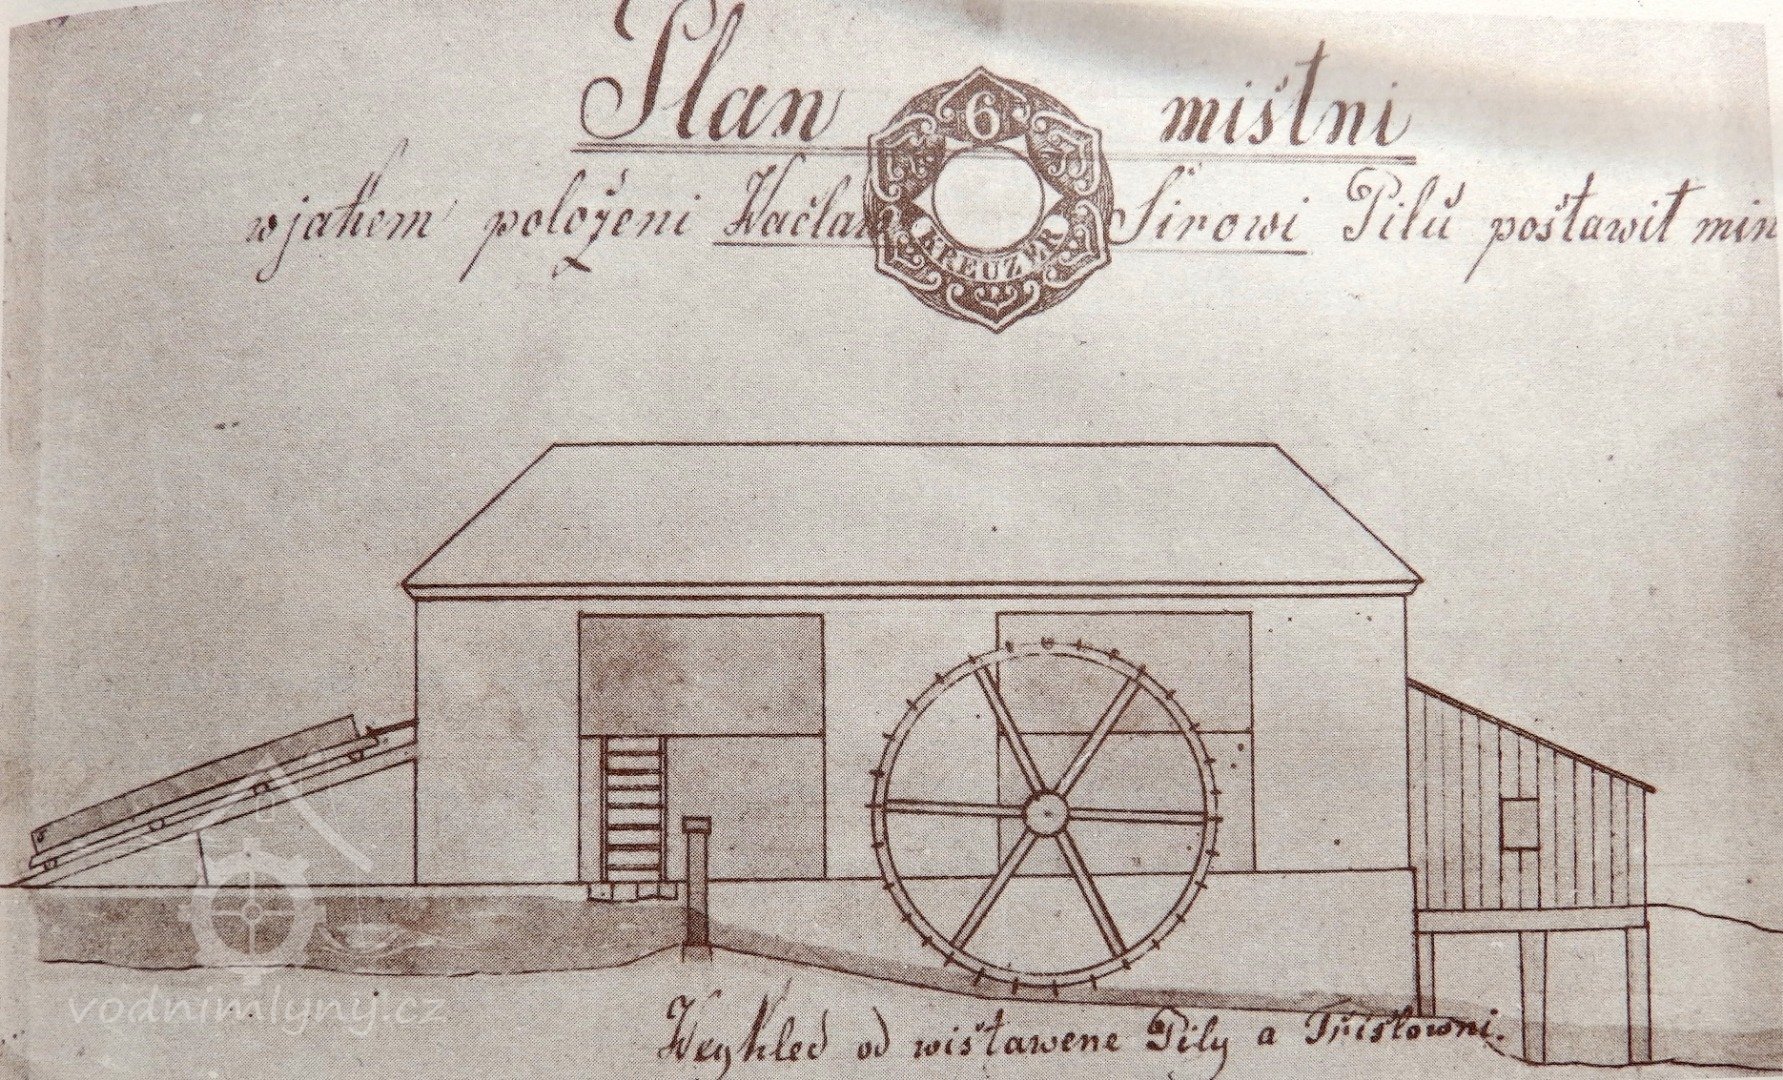 Plan mištni
6
wjakem položeni Wačlaw Širowi Pilu postawit min
KREUZER
Weykled od wištawene Pily a Třišlowni.
vodnimlyny.cz